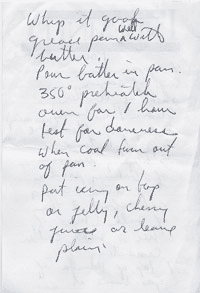 Whip it good
grease pan well with
batter.
Pour batter in pan.
350° preheated
oven for 1 hour
test for doneness
when cool turn out
of pan.
Put icing on top
or jelly, cherry
or leave
plain.